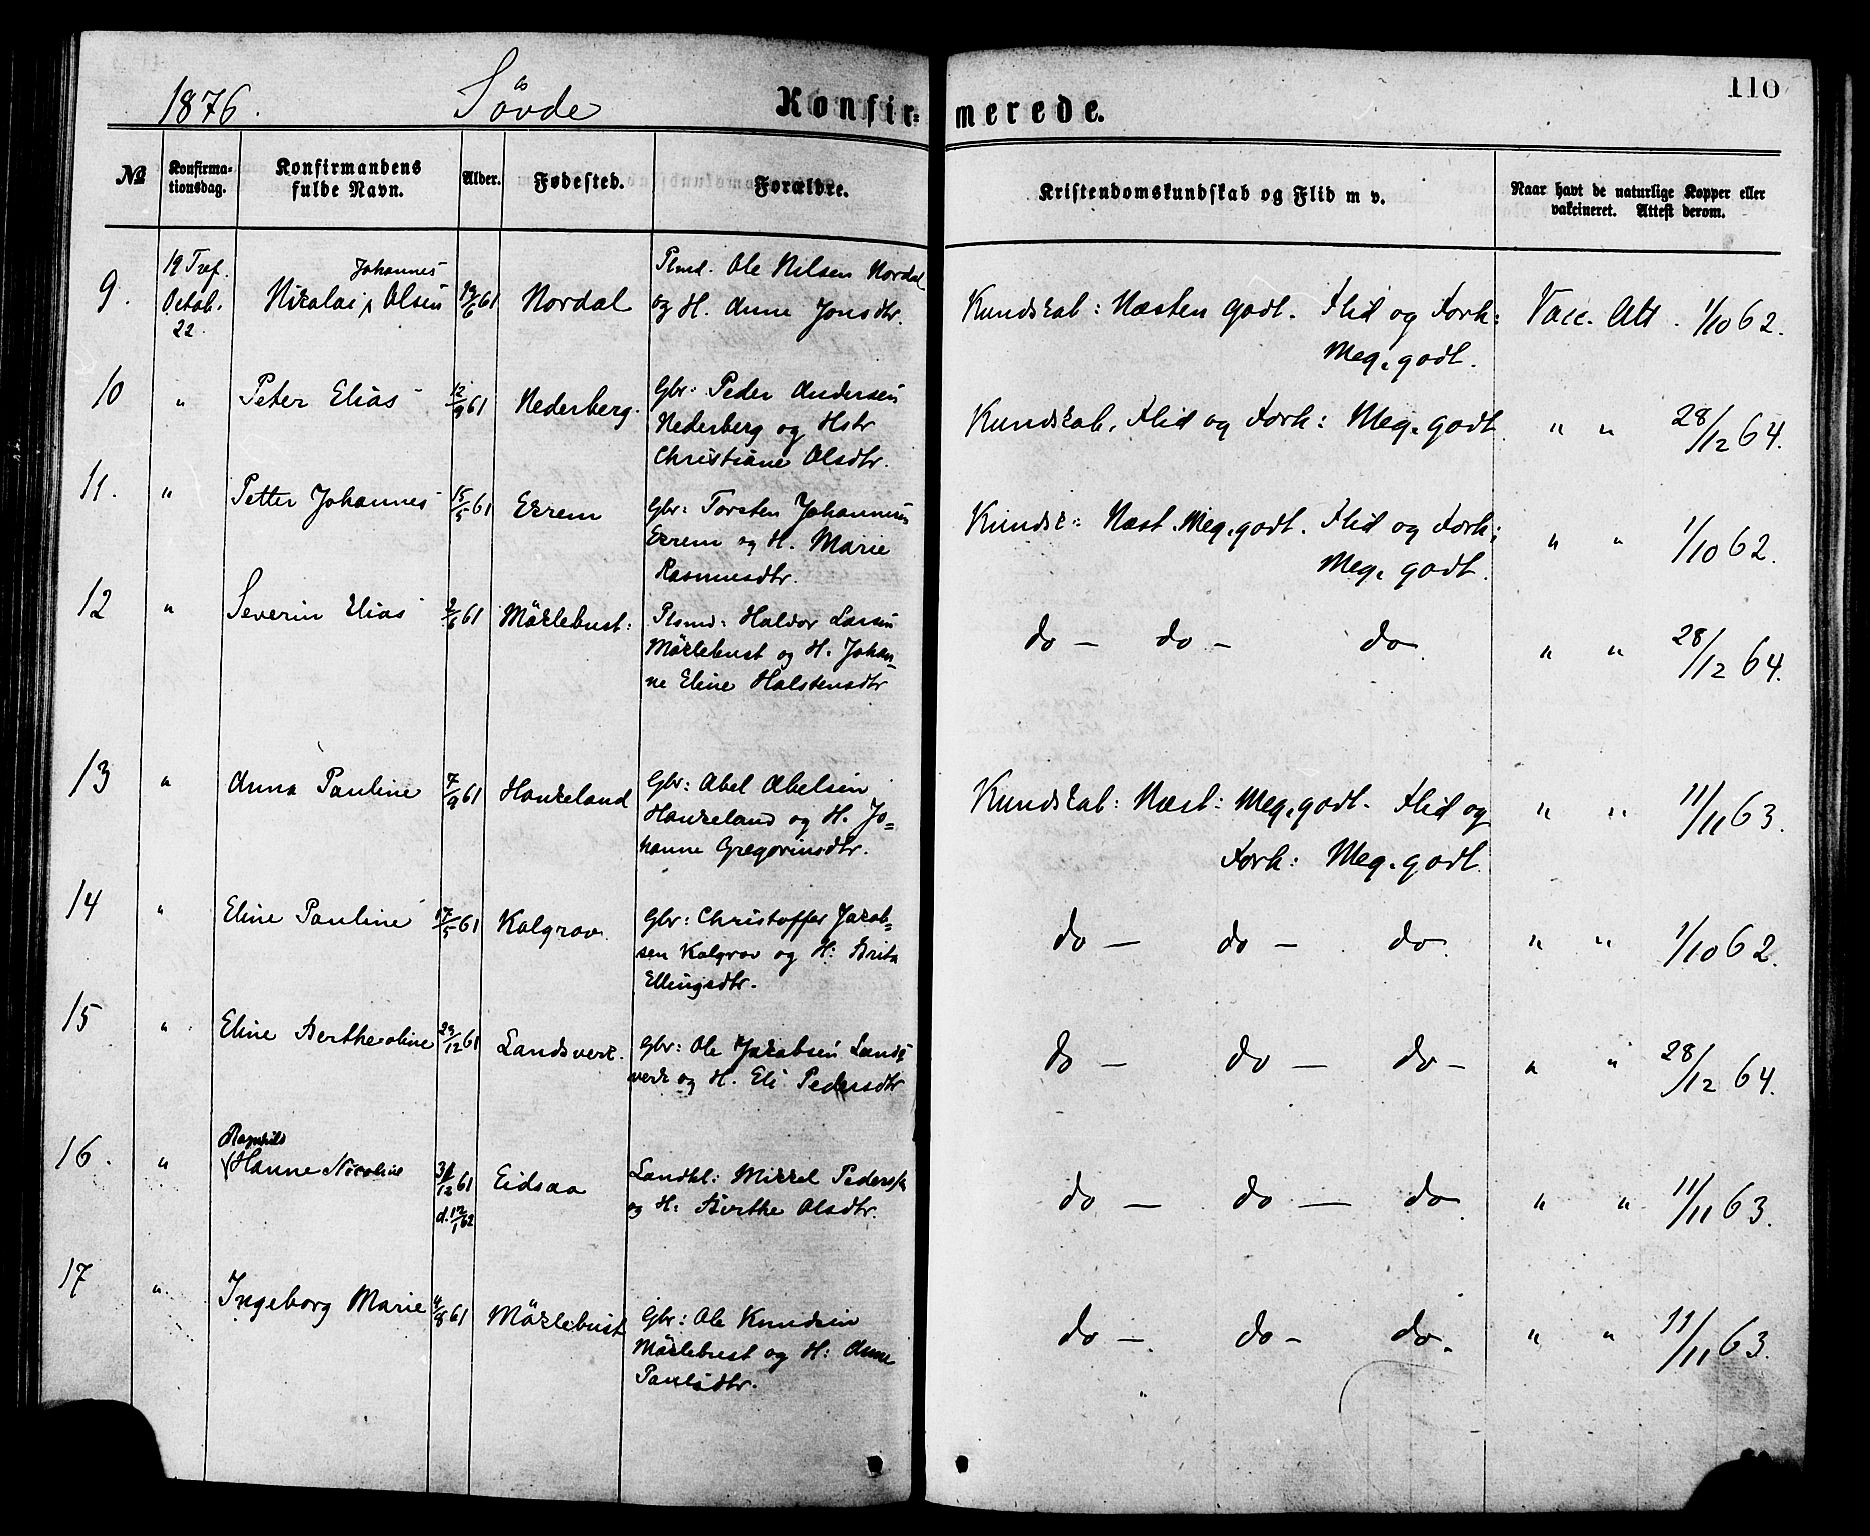 1876. Sövde Konfir=merede. 110
№ Konfirma-tionsdag. Konfirmandens fulde Navn. Alder. Fødested. Forældre. Kristendomskundskab og Flid m v. Naar havt de naturlige Kopper eller vakcineret. Attest derom.
9. 19 Tref. Johannes Plmd. Ole Nilsen Nordal
Octob. Nikolai Olsen 61 Nordal og H. Anne Jonsdtr. Kundskab: Næsten godt. Flid og Forh: Vacc. Att. 1/10 62.
22. Meg. godt.
10 " Peter Elias 12/9 61 Nederberg. Gbr: Peder Andersen
Nederberg og Hstr Kundskab, Flid og Forh: Meg. godt. " " 28/12 64.
Christiane Olsdtr.
11. " Petter Johannes 15/5 61 Ekrem Gbr: Torsten Johannesen Kundsk: Næst. Meg. godt. Flid og Forh:
Ekrem og H. Marie " " 1/10 62.
Rasmusdtr. Meg. godt.
12 " Severin Elias 2/6 61 Mörklebust: Plsmd: Haldor Larsen
Mörklebust og H. Johan- do - do - do " " 28/12 64.
ne Eline Halstensdtr
13 " Anna Pauline 7/9 61 Haukeland Gbr: Abel Abelsen Kundskab: Næst: Meg. godt. Flid og " " 11/11 63.
Haukeland og H. Jo=
hanne Gregoriusdtr. Forh: Meg. godt.
14 " Eline Pauline 17/5 61 Kalgrav. Gbr: Christoffer Jakob=
sen Kalgrav og H: Brita do - do - do " " 1/10 62.
Ellingsdtr.
15 " Eline Bertheoline 29/12 61 Landsverk. Gbr: Ole Jakobsen Lands
verk og H. Eli Pedersdtr do - do - do - " " 28/12 64.
16. " Ragnhild
Hanne Nicoline 12 61 Eidsaa Landhl: Mikkel Peders
d. 17/1 62 og H: Berthe Olsdtr. do - do - do " " 11/11 63.
17 " Ingeborg Marie 4/8 61 Mörklebust Gbr: Ole Knudsen
Mörklebust og H: Anne do - do - do. " " 11/11 63.
Paulsdtr.